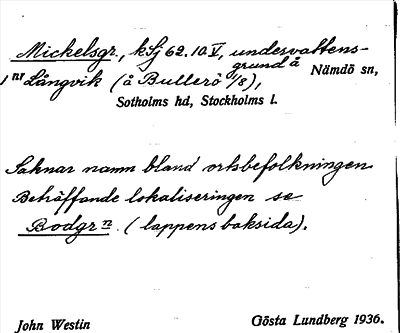 Mickelsgr., kSj 62.10 V, undervattens-
grund å Nämdö sn,
1 nr Långvik (å Bullerö 1/8),
Sotholms hd, Stockholms l.
Saknar namn bland ortsbefolkningen
Beträffande lokaliseringen se
Bodgr n. (lappens baksida).
John Westin Gösta Lundberg 1936.